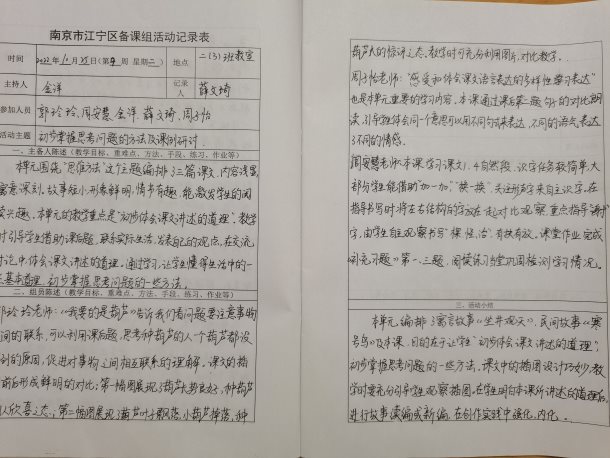 南京市江宁区备课组活动记录表
时间 2022年11月15日(第 周 星期二) 地点 二(3)班教室
主持人 金洋 记录人 薛文琦
参加人员 郭玲玲、周安慧、金洋、薛文琦、周子怡
活动主题 初步掌握思考问题的方法及课例研讨
一、主备人陈述(教学目标、重难点、方法、手段、练习、作业等)
本单元围绕"思维方法"这个主题编排三篇课文,内容浅显
寓意深刻,故事短小,形象鲜明,情节有趣,能激发学生的阅
读兴趣。本单元的教学重点是"初步体会课文讲述的道理",教学
时引导学生借助课后题,联系实际生活,发表自己的观点,在交流
讨论中体会课文讲述的道理。通过学习,让学生懂得生活中的一
些基本道理,初步掌握思考问题的一些方法。
二、组员陈述(教学目标、重难点、方法、手段、练习、作业等)
郭玲玲老师:《我要的是葫芦》告诉我们看问题要注意事物
之间的联系,可以利用课后题,思考种葫芦的人一个葫芦都没
得到的原因,促进对事物之间相互联系的理解。课文的插
图前后形成鲜明的对比:第一幅图展现了葫芦长势良好,种葫芦
的人欣喜之态;第二幅图展现了葫芦叶子飘落,小葫芦掉落,种
葫芦人的惊讶之态,教学时可充分利用图片,对比教学。
周子怡老师:"感受和体会课文语言表达的多样性,学习表达"
也是本元重要的学习内容。本课通过课后第二题句子的对比朗
读,引导学生体会同一意思可以用不同句式来表达,不同的语气表达
了不同的情感。
周安慧老师:本课学习课文1、4自然段,识字任务较简单,大
部分学生能借助"加一加""换一换"、关注形声字来自主识字。在
指导书写时,将左右结构的字放在一起对比观察,重点指导"谢"
字,由学生自主观察书写"棵、怪、治",有扶有放。课堂作业,完成
《补充习题》第一、三题,阅读练习当堂巩固,检测学习情况。
三、活动小结
本单元编排了寓言故事《坐井观天》、民间故事《寒
号鸟》及本课,目的在于让学生"初步体会课文讲述的道理",
初步掌握思考问题的一些方法。课文中的插图设计巧妙,教
学时要充分引导学生观察插图。在学生明白本课所讲述的道理后,
进行故事续编或新编,在创作实践中强化、内化。